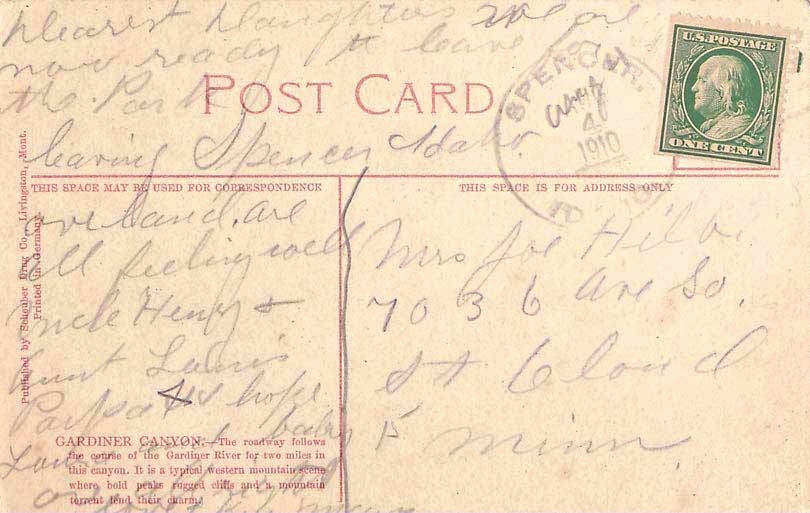 Dearest Daughters we are
now ready to leave
the Park
POST CARD
leaving Spencer Idaho.
SPENCER
Aug
4
1910
U.S. POSTAGE
ONE CENT
THIS SPACE MAY BE USED FOR CORRESPONDENCE
THIS SPACE IS FOR ADDRESS ONLY
overland. are
all feeling well
Uncle Henry &
Aunt
Papa hope
baby
Mrs Joe
703 6 Ave So.
St Cloud
Minn
Published by Scheuber Drug Co., Livingston, Mont.
Printed in Germany.
GARDINER CANYON.—The roadway follows
the course of the Gardiner River for two miles in
this canyon. It is a typical western mountain scene
where bold peaks rugged cliffs and a mountain
torrent lend their charm.